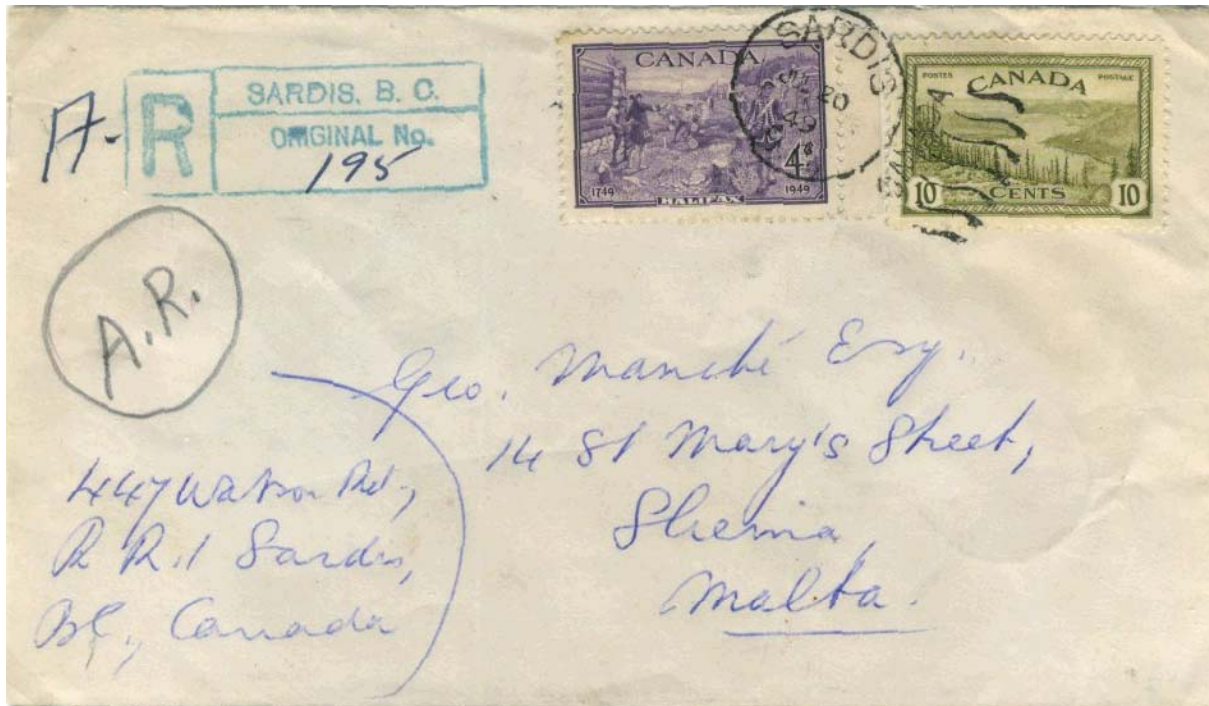 A-
R
SARDIS. B. C.
ORIGINAL No.
195
CANADA
4¢
1749 HALIFAX 1949
SARDIS
20
49
POSTES POSTAGE
CANADA
10 CENTS 10
A.R.
Geo. Manché Esq.
14 St Mary's Street,
Sliema,
Malta.
447 Watson Rd,
R R.1 Sardis,
BC., Canada